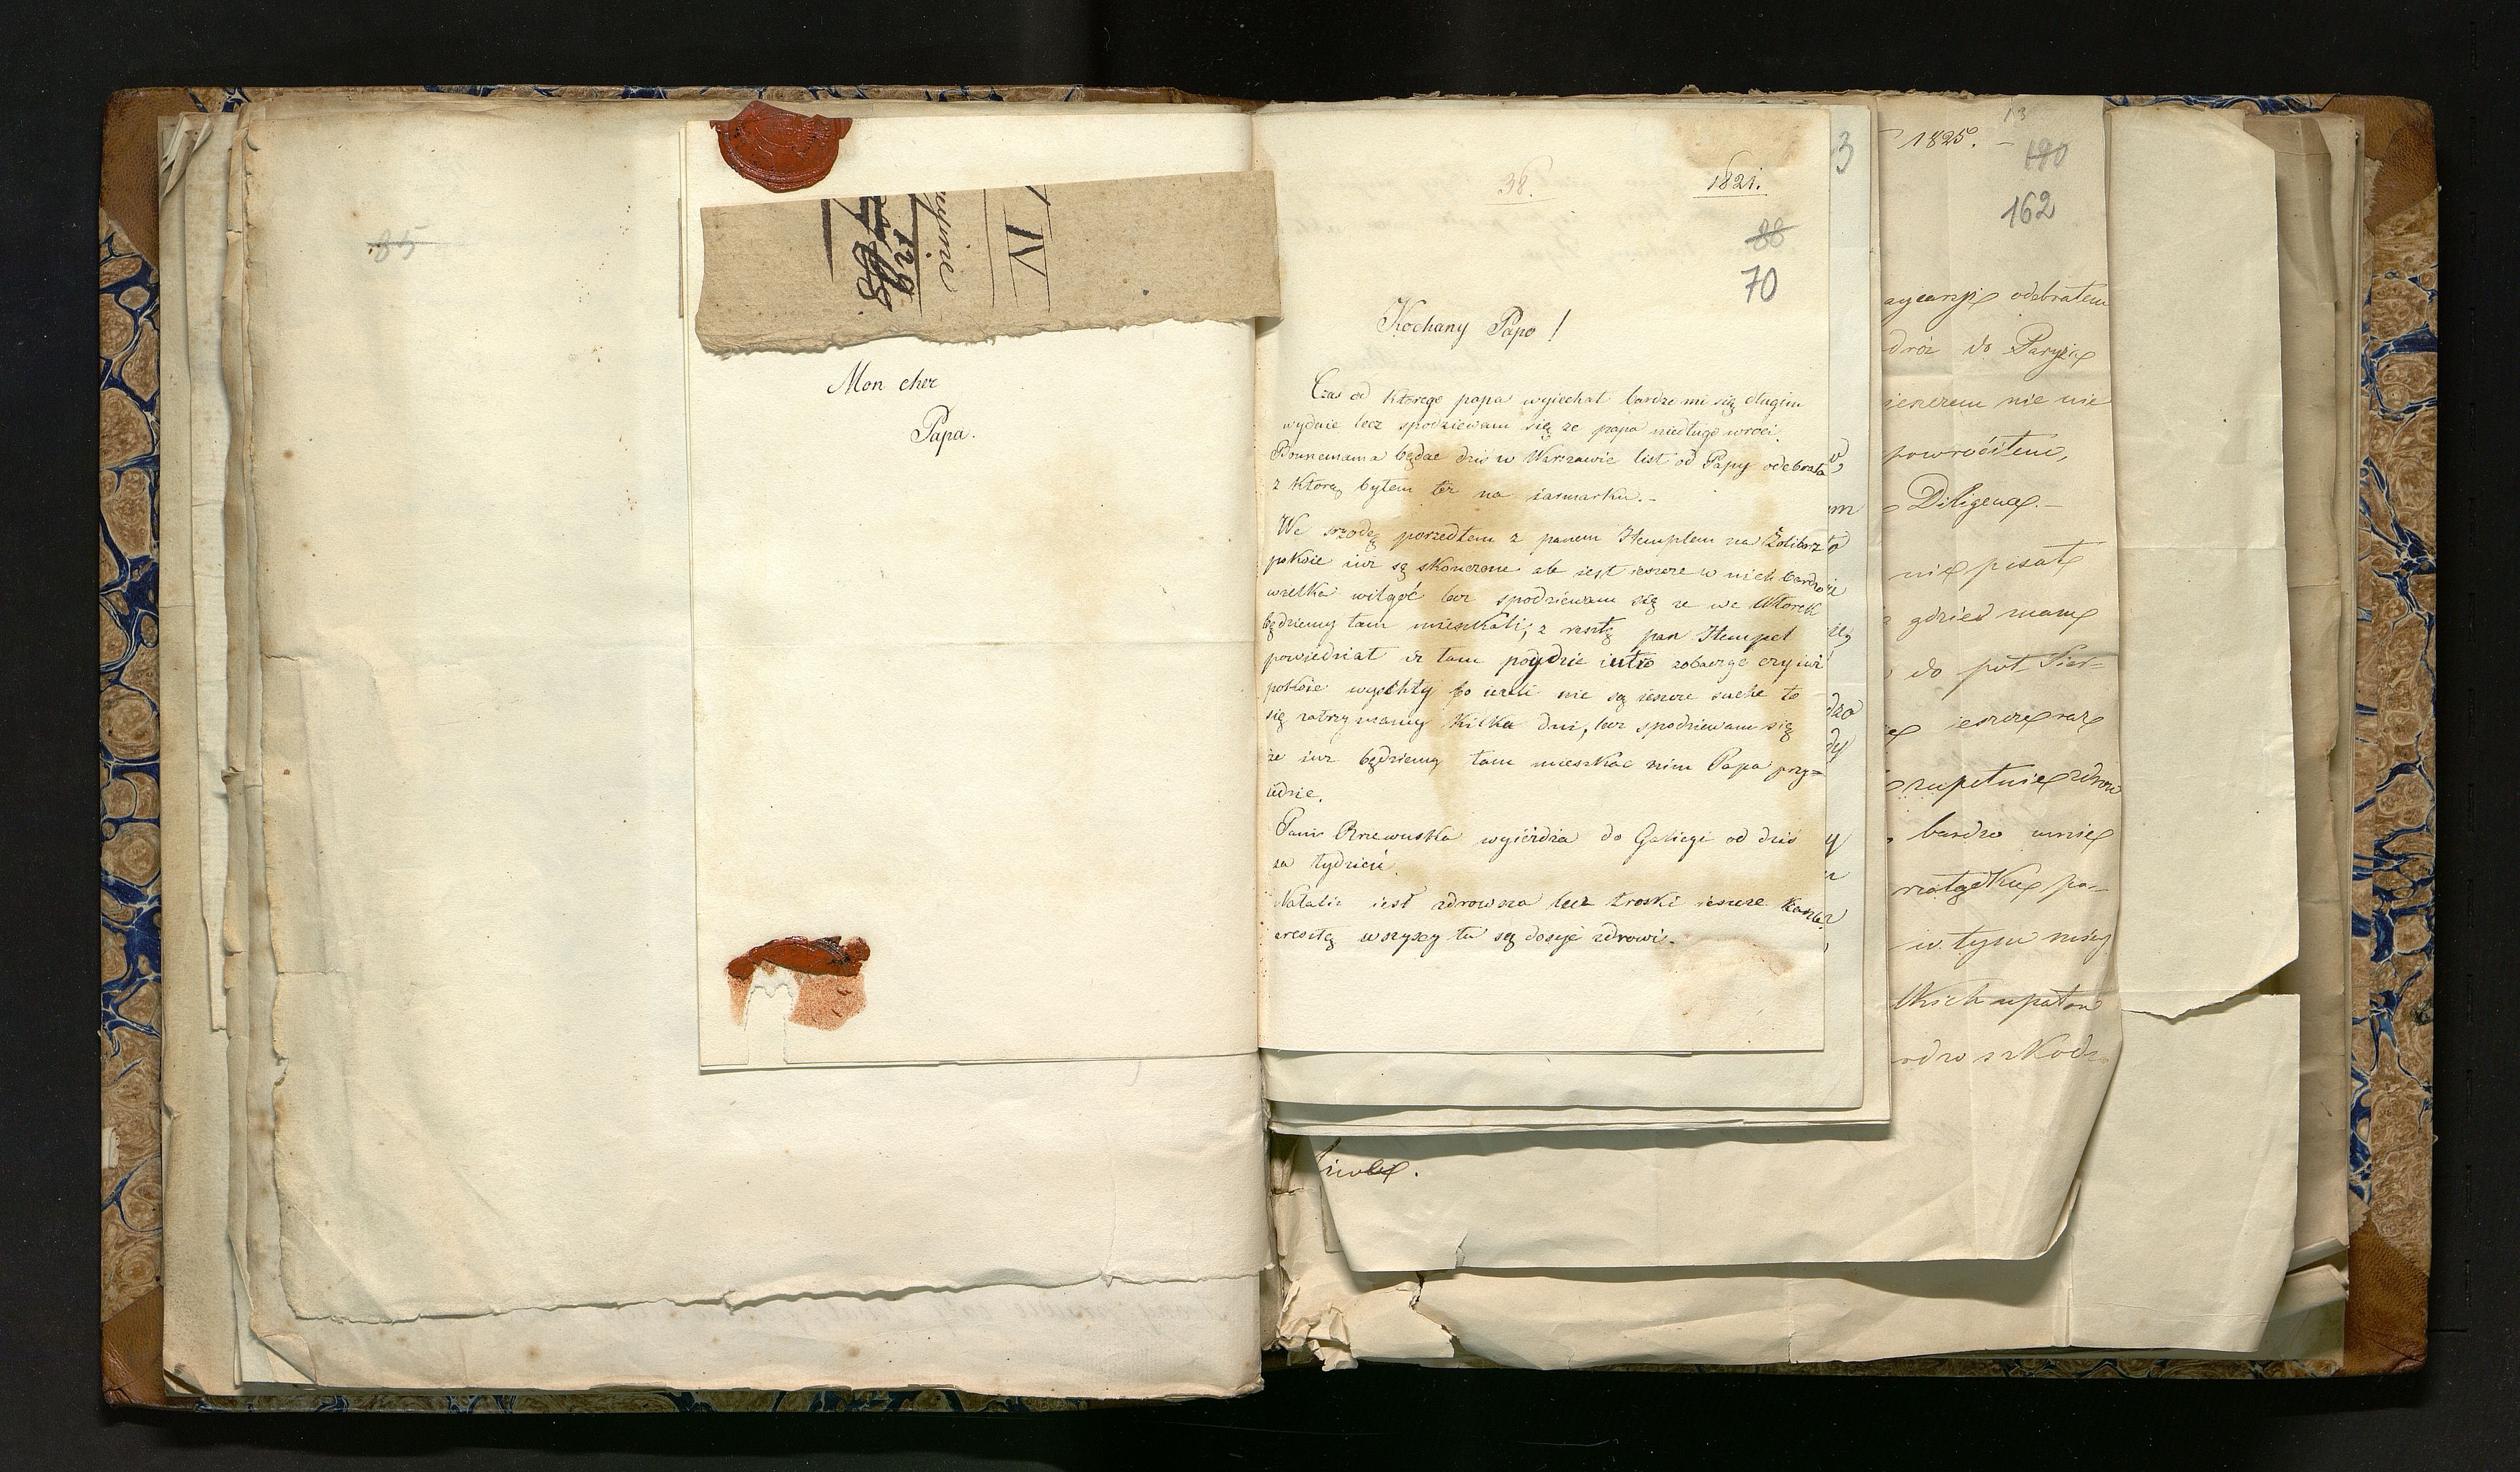 85
Mon cher
Papa.
IV
38.
1821.
88
70
Kochany Papo!
Czas od ktorego papa wyiechał bardzo mi się długim
wydaie lecz spodziewam się ze papa niedługo wroci.
będac dziś w Warszawie list od Papy odebrała
z ktorą byłem też na iarmarku.-
We srzodę poszedłem z panem Hemplem na Żoliborz
pokoie iuz są skonczone ale iest ieszcze w nich bardzo
wielka wilgoć lecz spodziewam się ze we Wtorek
będziemy tam mieszkali; z resztą pan Hempel
powiedział iz tam poydzie iutro zobaczyc czy iuż
pokoie wyschły bo iezeli nie są ieszcze suche to
się zatrzymamy kilka dni, lecz spodziewam się
że iuz będziemy tam mieszkac nim Papa przy=
iedzie.
Pani Rzewuska wyieżdza do Galicyi od dziś
za tydzień.
Natalia iest zdrowsza lecz troski ieszcze kaszle
zresztą wszyscy tu są dosyć zdrowi.
3
1825. -
13
190
162
odebrałem
do Paryża
nie nie
powróciłem,
Diligence.-
nie pisał
gdzieś mamę
do pół
ieszcze raz
zupełnie zdrow
bardzo mnie
w tym